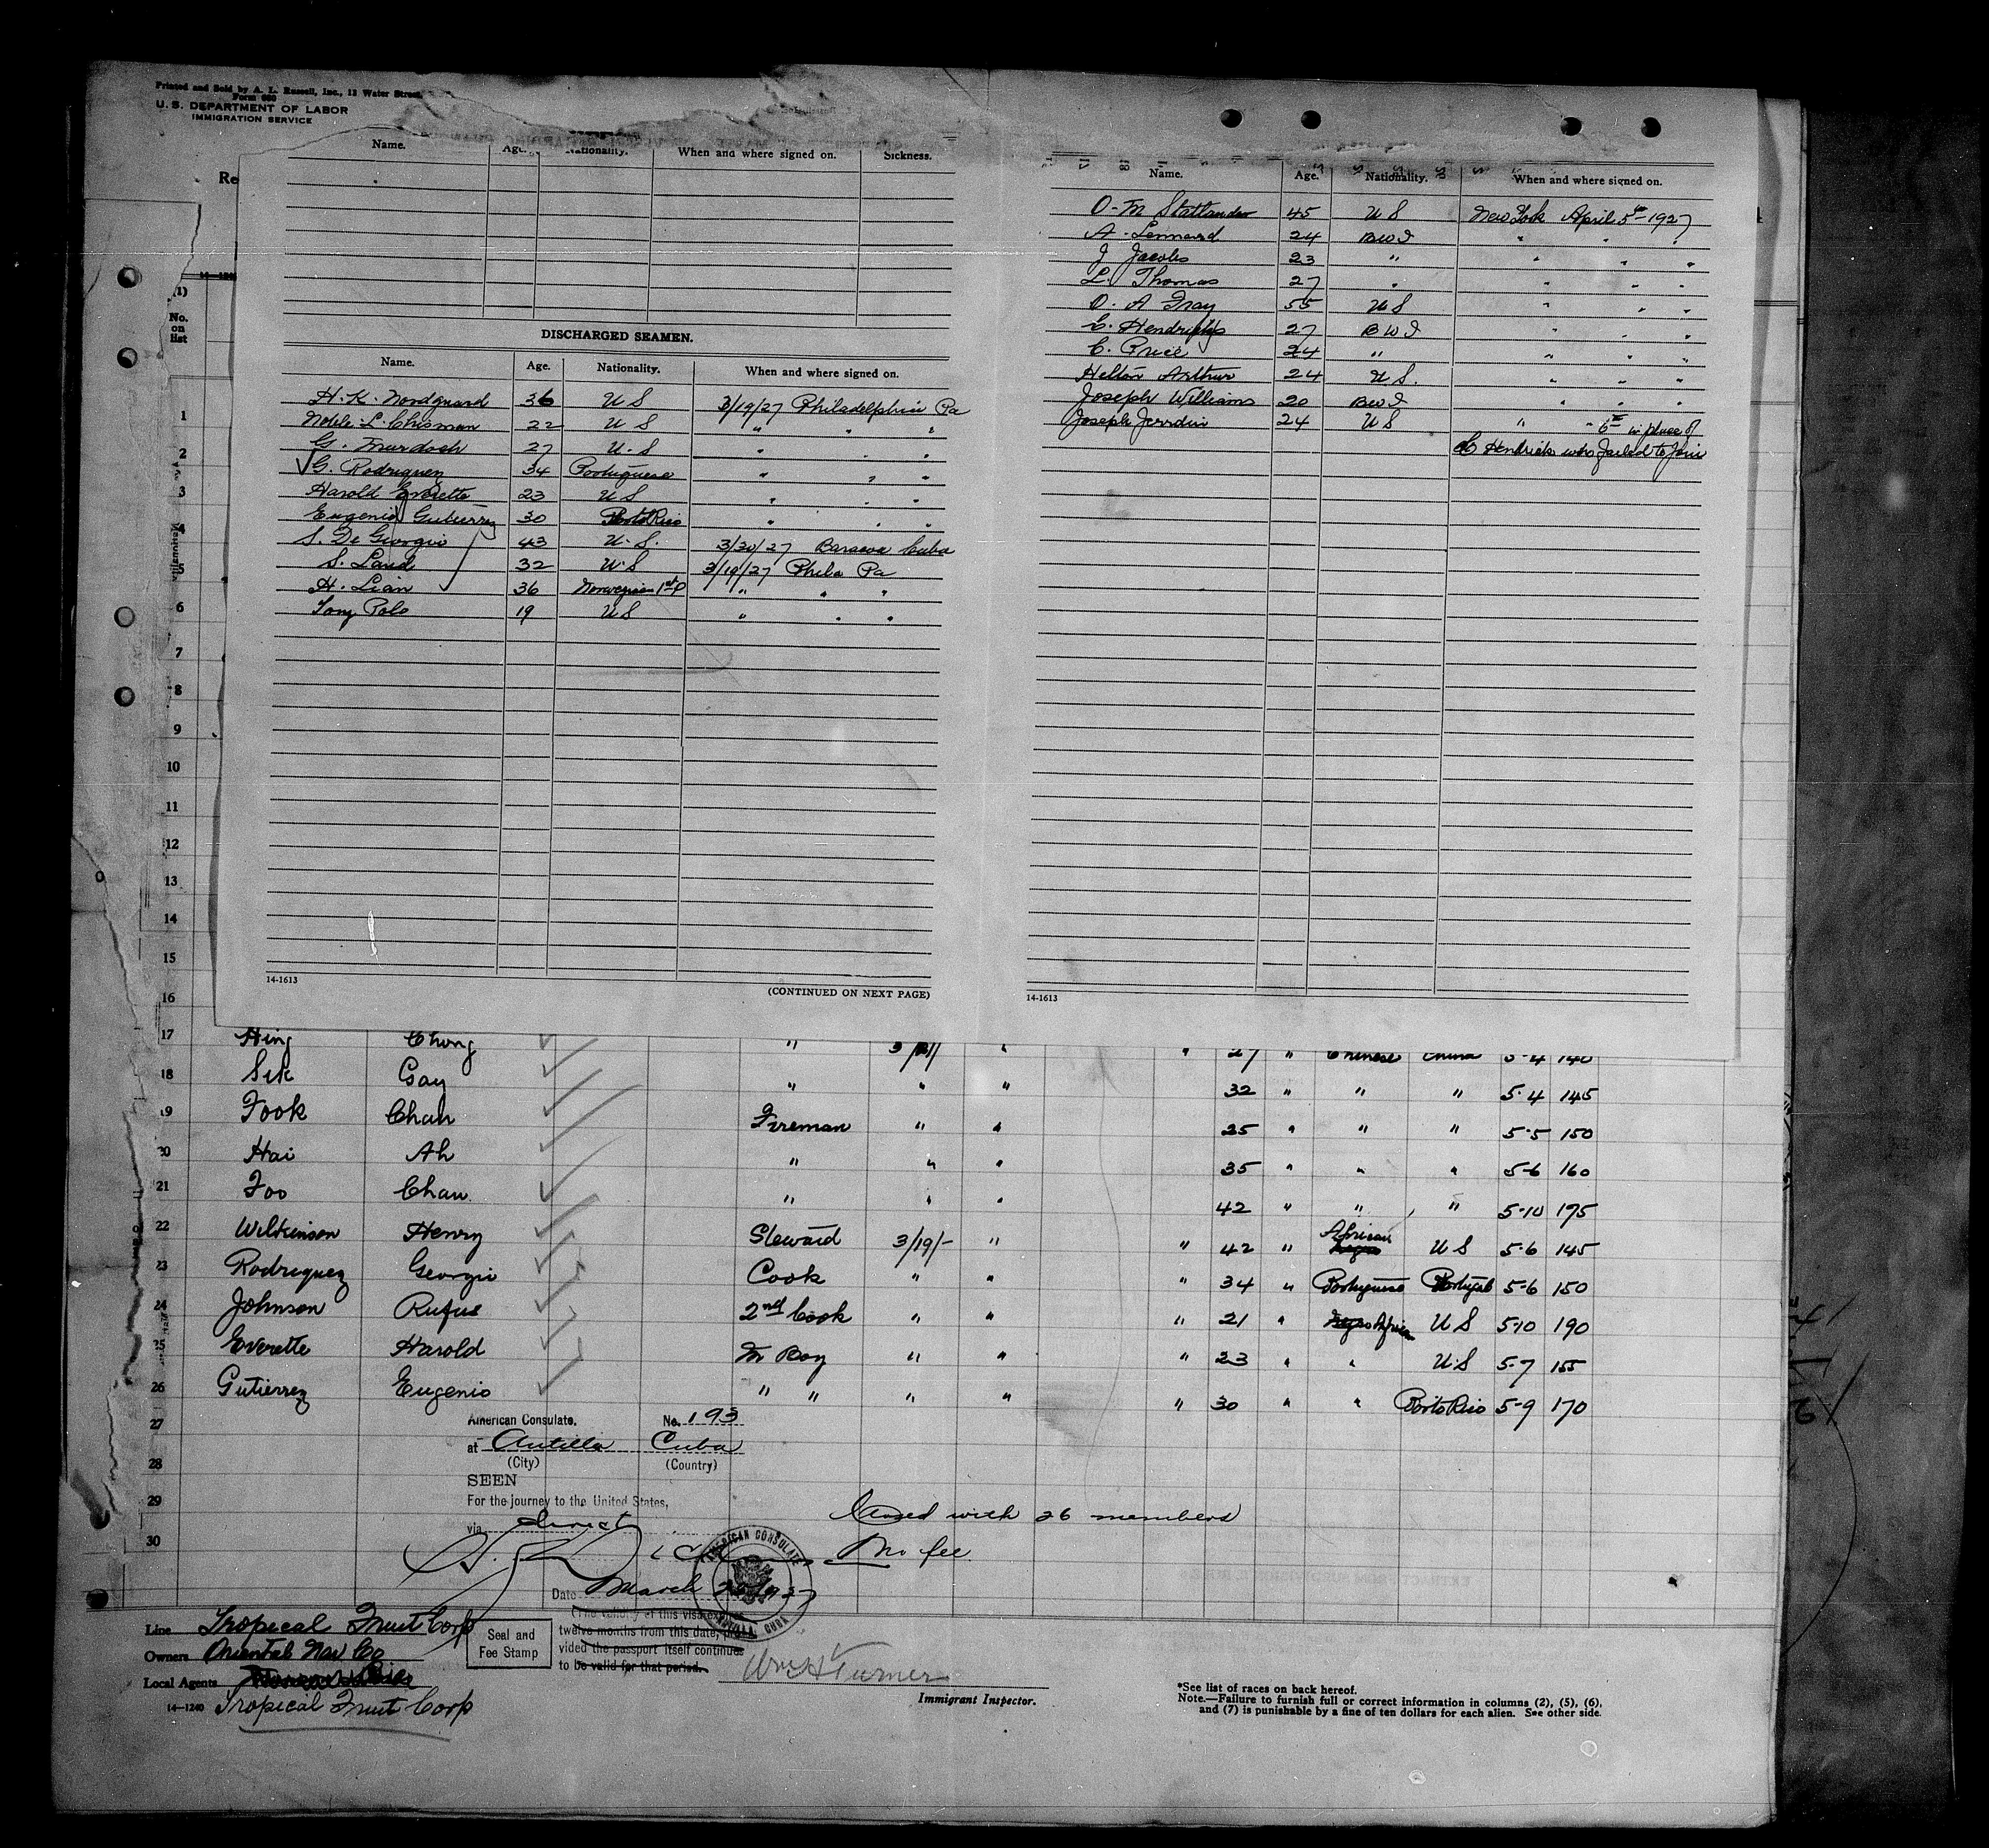 Printed and Sold by A. L. Russell, Inc., 12 Water Street,
Form 680
U. S. DEPARTMENT OF LABOR
IMMIGRATION SERVICE
Re
(1)
No.
on
list
Name. Age. Nationality. When and where signed on. Sickness.
DISCHARGED SEAMEN.
Name. Age. Nationality. When and where signed on.
H. K. Nordguard 36 U S 3/19/27 Philadelphia Pa
Noble L. Chisman 22 U S " " "
G. Murdoch 27 U. S " " "
√G. Rodriguez 34 Portuguese " " "
Harold Everette 23 U S " " "
Eugenio Gutierrez 30 Porto Rico " " "
S. De Giorgio 43 U. S. 3/20/27 Baracoa Cuba
S. Laud 32 U. S 3/19/27 Phila Pa
H. Lian 36 Norwegian 1st P " " "
Tony Polo 19 U S " " "
14-1613
(CONTINUED ON NEXT PAGE)
Name. Age. Nationality. When and where signed on.
O. M Statlander 45 U S New York April 5th 1927
A. Lennard 24 B W I " " "
J Jacobs 23 " " " "
L. Thomas 27 " " " "
O. A Gray 55 U S " " "
C. Hendricks 27 B W I " " "
C. Price 24 " " " "
Helton Arthur 24 U S. " " "
Joseph Williams 20 B W I " " "
Joseph Jerrdin 24 U S " " 6th in place of
C Hendricks who failed to join
14-1613
1
2
3
4
5
6
7
8
9
10
11
12
13
14
15
16
17 Hing Chong " 3/21/ " " 27 " Chinese China 5-4 140
18 Sik Gay " " " 32 " " " 5-4 145
19 Fook Chan Fireman " " 25 " " " 5-5 150
20 Hai Ah " " " 35 " " " 5-6 160
21 Foo Chan " " " 42 " " " 5-10 175
22 Wilkinson Henry Steward 3/19/- " " 42 " African U S 5-6 145
23 Rodriguez Georgio Cook " " " 34 " Portuguese Portugal 5-6 150
24 Johnson Rufus 2nd Cook " " " 21 " Negro African U S 5-10 190
25 Everette Harold M Boy " " " 23 " " U.S 5-7 155
26 Gutierrez Eugenio " " " " " 30 " " Porto Rico 5-9 170
27
28
29
30
American Consulate, No. 193
at Antilla Cuba
(City) (Country)
SEEN
For the journey to the United States,
via direct
Closed with 26 members
No fee
AMERICAN CONSULATE
ANTILLA, CUBA
Date March 26 1927
(The validity of this visa expires
twelve months from this date, pro-
vided the passport itself continues
to be valid for that period.
Seal and
Fee Stamp
Line Tropical Fruit Corp
Owners Oriental Nav Co
Local Agents
14-1240 Tropical Fruit Corp
Wm H Turner
Immigrant Inspector.
*See list of races on back hereof.
Note.—Failure to furnish full or correct information in columns (2), (5), (6),
and (7) is punishable by a fine of ten dollars for each alien. See other side.